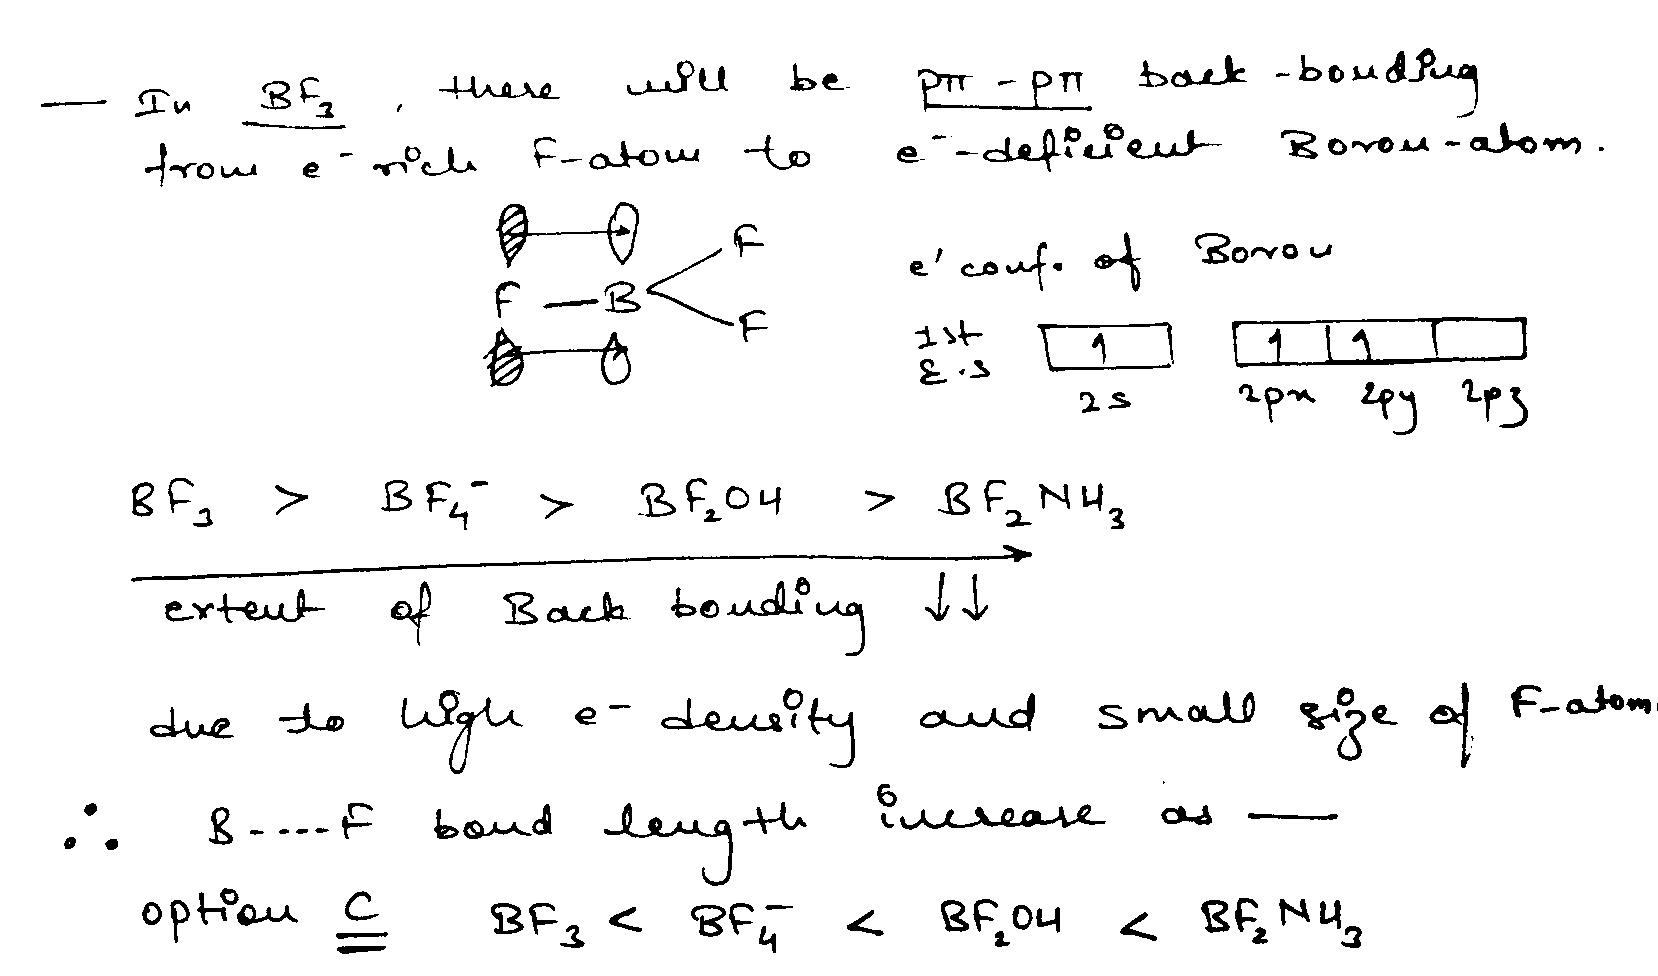 — In BF₃, there will be pπ - pπ back-bonding
from e⁻ rich F-atom to e⁻-deficient Boron-atom.
F
F — B
F
e' conf. of Boron
1st
E.S
1 1 1
2s 2px 2py 2pz
BF₃ > BF₄⁻ > BF₂OH > BF₂NH₃
extent of Back bonding ↓↓
due to high e⁻ density and small size of F-atom.
∴ B----F bond length increase as —
option C BF₃ < BF₄⁻ < BF₂OH < BF₂NH₃